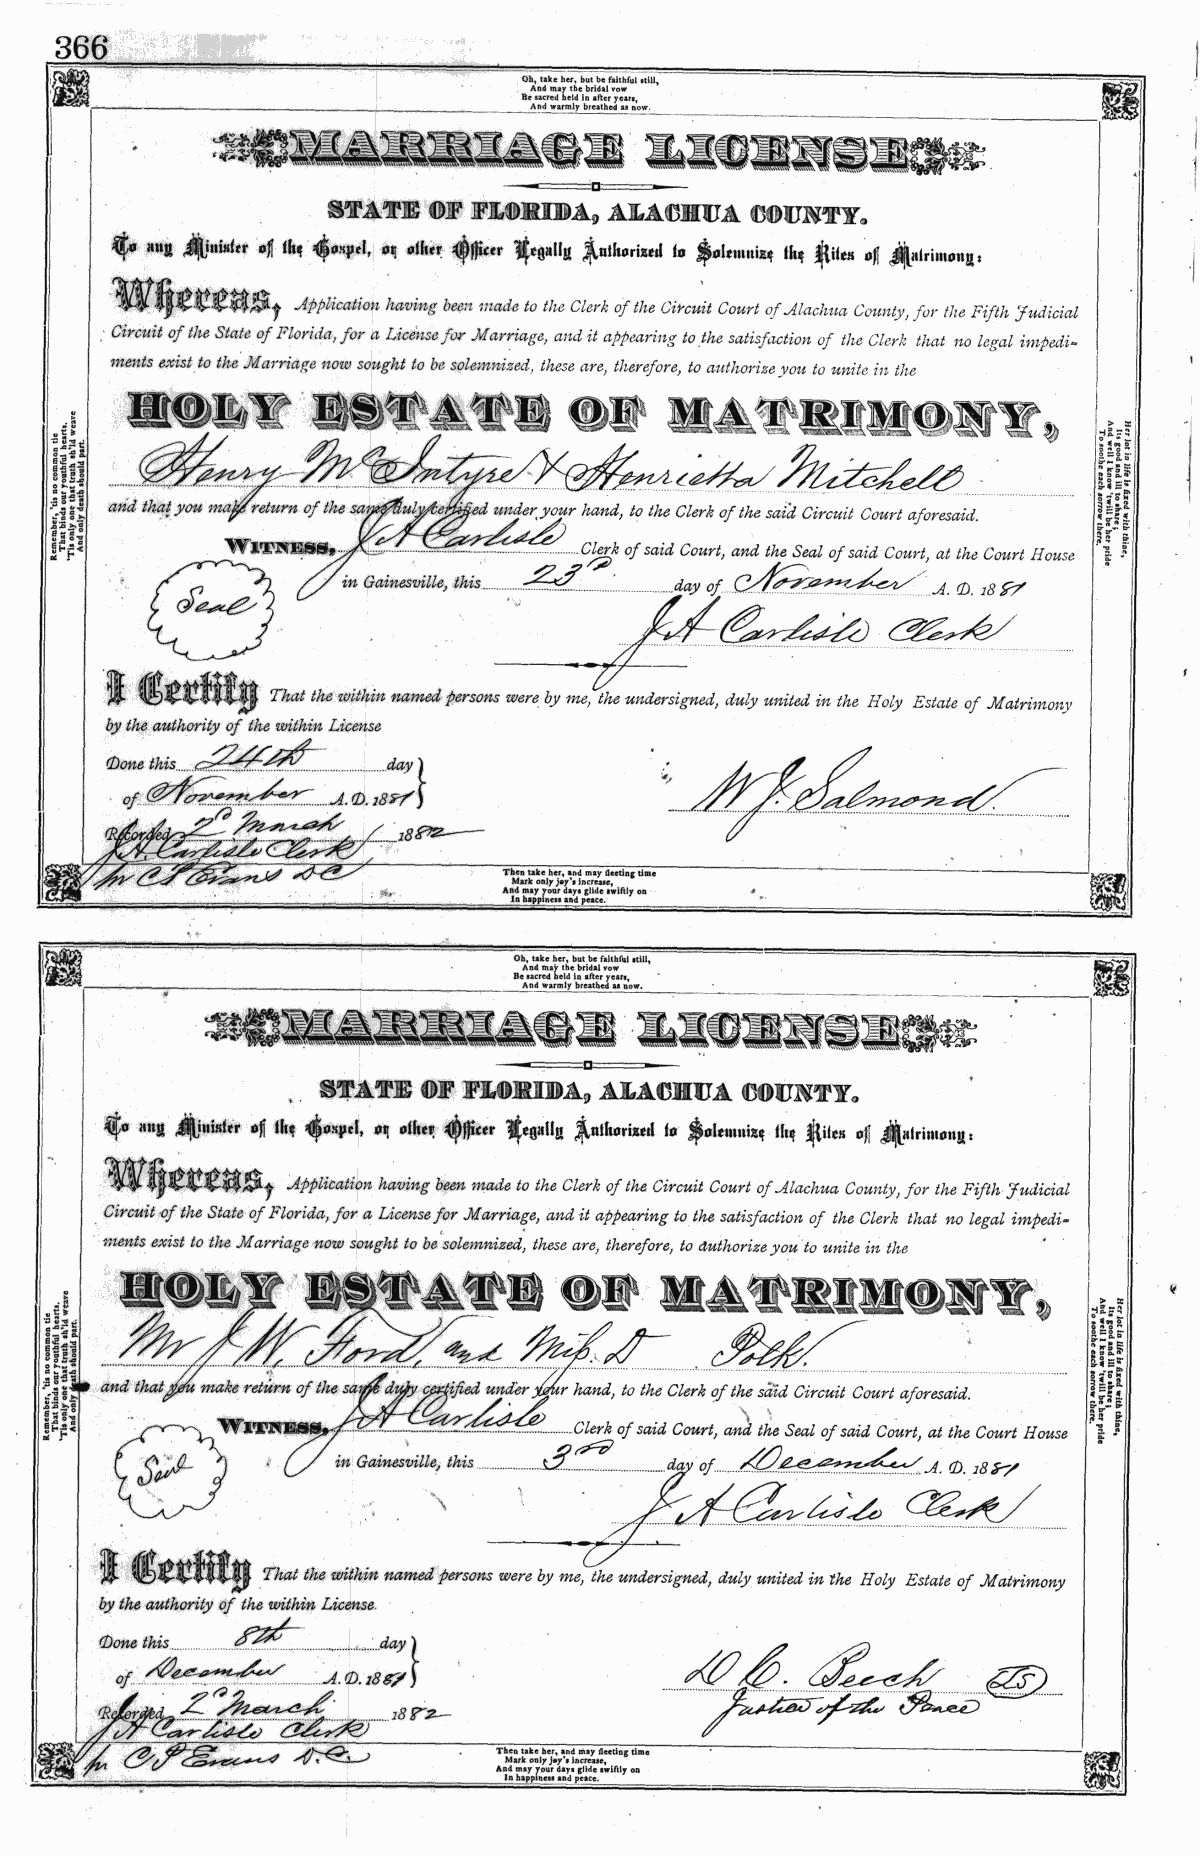 366
Oh, take her, but be faithful still,
And may the bridal vow
Be sacred held in after years,
And warmly breathed as now.
MARRIAGE LICENSE
STATE OF FLORIDA, ALACHUA COUNTY.
To any Minister of the Gospel, or other Officer Legally Authorized to Solemnize the Rites of Matrimony:
Whereas, Application having been made to the Clerk of the Circuit Court of Alachua County, for the Fifth Judicial
Circuit of the State of Florida, for a License for Marriage, and it appearing to the satisfaction of the Clerk that no legal impedi-
ments exist to the Marriage now sought to be solemnized, these are, therefore, to authorize you to unite in the
HOLY ESTATE OF MATRIMONY,
Henry McIntyre & Henrietta Mitchell
and that you make return of the same duly certified under your hand, to the Clerk of the said Circuit Court aforesaid.
WITNESS, J A Carlisle Clerk of said Court, and the Seal of said Court, at the Court House
in Gainesville, this 23rd day of November A. D. 1881
Seal
J A Carlisle Clerk
I Certify That the within named persons were by me, the undersigned, duly united in the Holy Estate of Matrimony
by the authority of the within License
Done this 24th day
of November A. D. 1881
W J. Salmond.
Recorded 2d March 1882
J A. Carlisle Clerk
pr C P Evans D C
Remember, 'tis no common tie
That binds our youthful hearts,
'Tis only one that truth sh'ld weave
And only death should part.
Her lot in life is fixed with thine,
Its good and ill to share;
And well I know 'twill be her pride
To soothe each sorrow there.
Then take her, and may fleeting time
Mark only joy's increase,
And may your days glide swiftly on
In happiness and peace.
Oh, take her, but be faithful still,
And may the bridal vow
Be sacred held in after years,
And warmly breathed as now.
MARRIAGE LICENSE
STATE OF FLORIDA, ALACHUA COUNTY.
To any Minister of the Gospel, or other Officer Legally Authorized to Solemnize the Rites of Matrimony:
Whereas, Application having been made to the Clerk of the Circuit Court of Alachua County, for the Fifth Judicial
Circuit of the State of Florida, for a License for Marriage, and it appearing to the satisfaction of the Clerk that no legal impedi-
ments exist to the Marriage now sought to be solemnized, these are, therefore, to authorize you to unite in the
HOLY ESTATE OF MATRIMONY,
Mr J W. Ford, and Miss. D Polk.
and that you make return of the same duly certified under your hand, to the Clerk of the said Circuit Court aforesaid.
WITNESS, J A Carlisle Clerk of said Court, and the Seal of said Court, at the Court House
in Gainesville, this 3rd day of December A. D. 1881
Seal
J A Carlisle Clerk
I Certify That the within named persons were by me, the undersigned, duly united in the Holy Estate of Matrimony
by the authority of the within License.
Done this 8th day
of December A. D. 1881
D C. Beech LS
Justice of the Peace
Recorded 2d March 1882
J A Carlisle Clerk
pr C P Evans D. C.
Remember, 'tis no common tie
That binds our youthful hearts,
'Tis only one that truth sh'ld weave
And only death should part.
Her lot in life is fixed with thine,
Its good and ill to share;
And well I know 'twill be her pride
To soothe each sorrow there.
Then take her, and may fleeting time
Mark only joy's increase,
And may your days glide swiftly on
In happiness and peace.